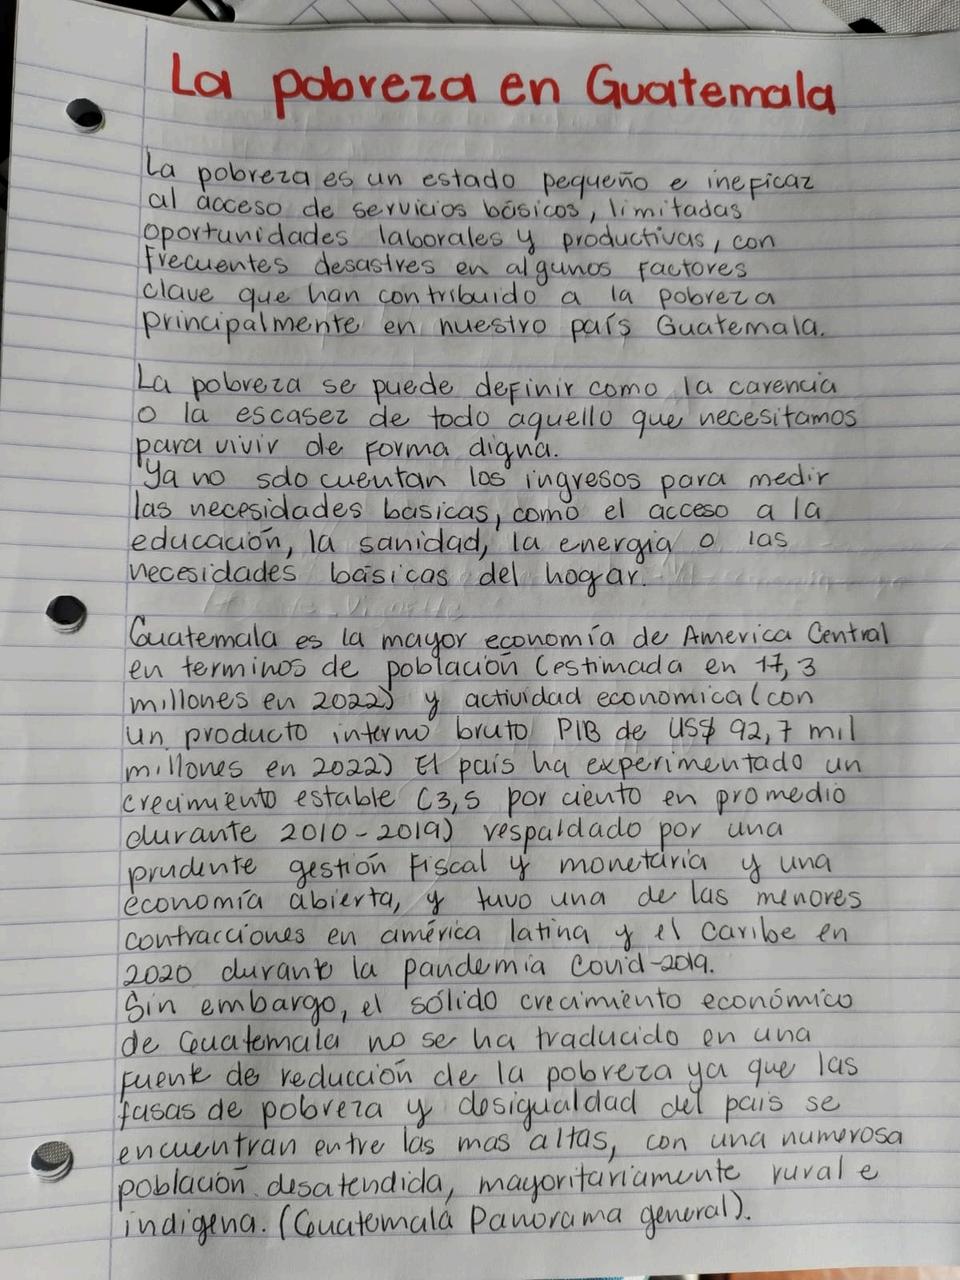 La pobreza en Guatemala
La pobreza es un estado pequeño e ineficaz
al acceso de servicios básicos, limitadas
oportunidades laborales y productivas, con
frecuentes desastres en algunos factores
clave que han contribuido a la pobreza
principalmente en nuestro país Guatemala.
La pobreza se puede definir como la carencia
o la escasez de todo aquello que necesitamos
para vivir de forma digna.
Ya no solo cuentan los ingresos para medir
las necesidades basicas, como el acceso a la
educación, la sanidad, la energia o las
necesidades básicas del hogar.
Guatemala es la mayor economía de America Central
en terminos de población (estimada en 17, 3
millones en 2022) y actividad economica (con
un producto interno bruto PIB de US$ 92,7 mil
millones en 2022) El país ha experimentado un
crecimiento estable (3,5 por ciento en promedio
durante 2010-2019) respaldado por una
prudente gestión fiscal y monetaria y una
economía abierta, y tuvo una de las menores
contracciones en américa latina y el caribe en
2020 durante la pandemia Covid-2019.
Sin embargo, el sólido crecimiento económico
de Guatemala no se ha traducido en una
fuente de reducción de la pobreza ya que las
tasas de pobreza y desigualdad del pais se
encuentran entre las mas altas, con una numerosa
población desatendida, mayoritariamente rural e
indigena. (Guatemala Panorama general).